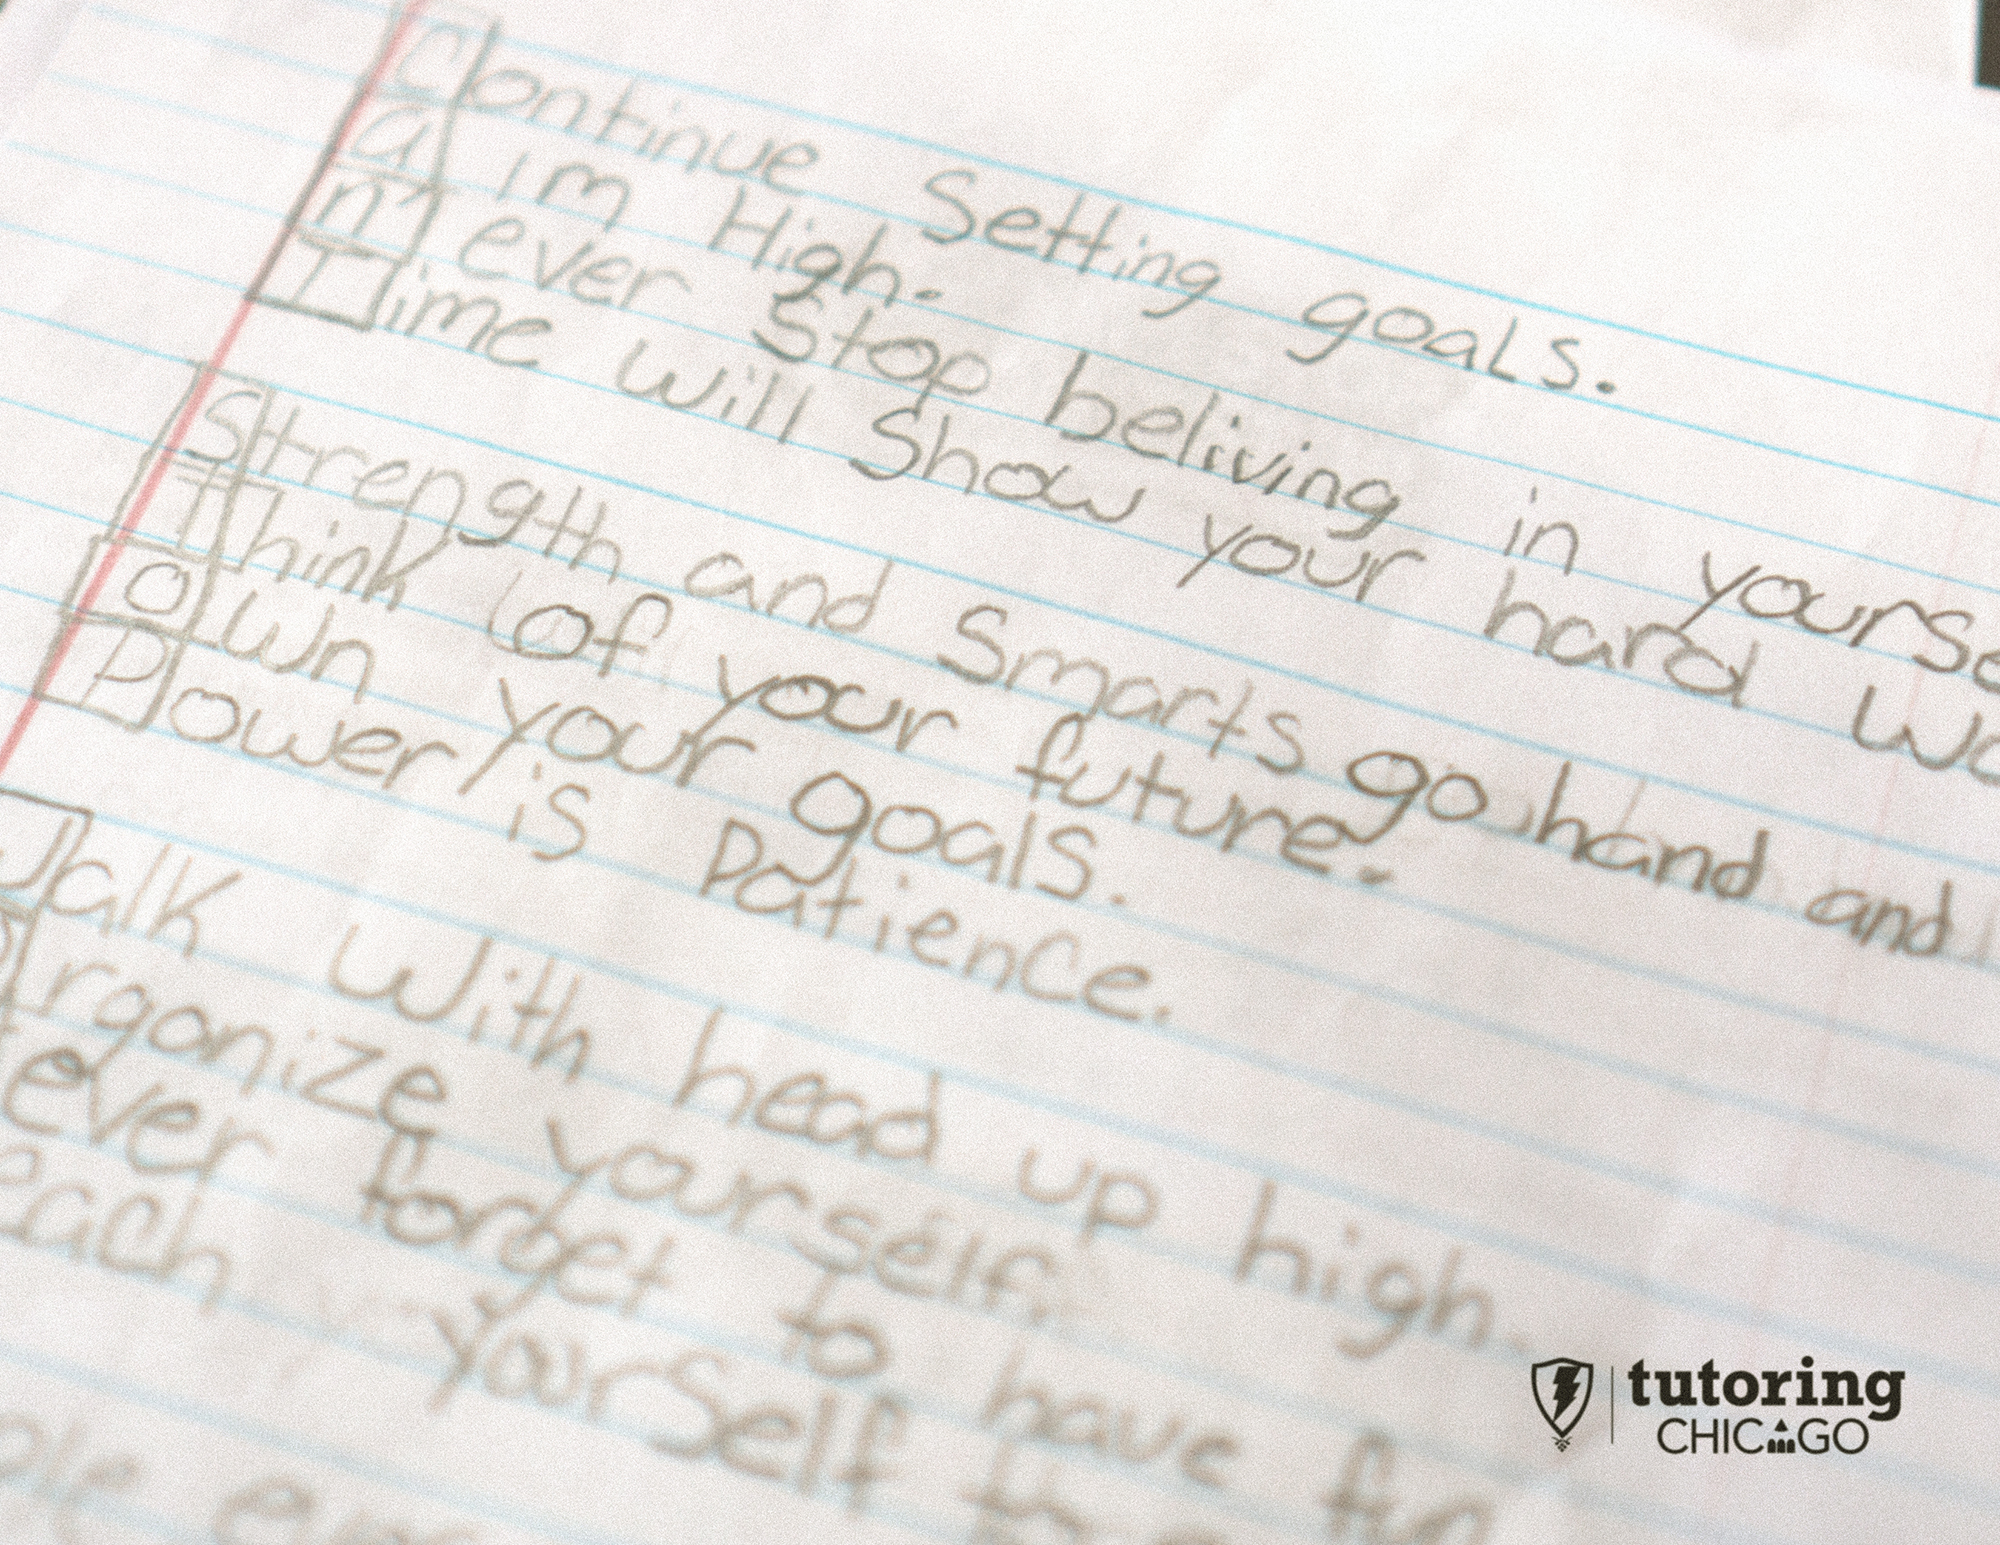 Continue Setting goals.
aim High.
never Stop beliving in yourse
Time will Show your hard wo
Strength and Smarts go hand and
Think of your future.
own your goals.
Power is Patience.
Walk With head up high.
orgonize yourself.
ever forget to have fu
each yourself to
tutoring
CHICAGO